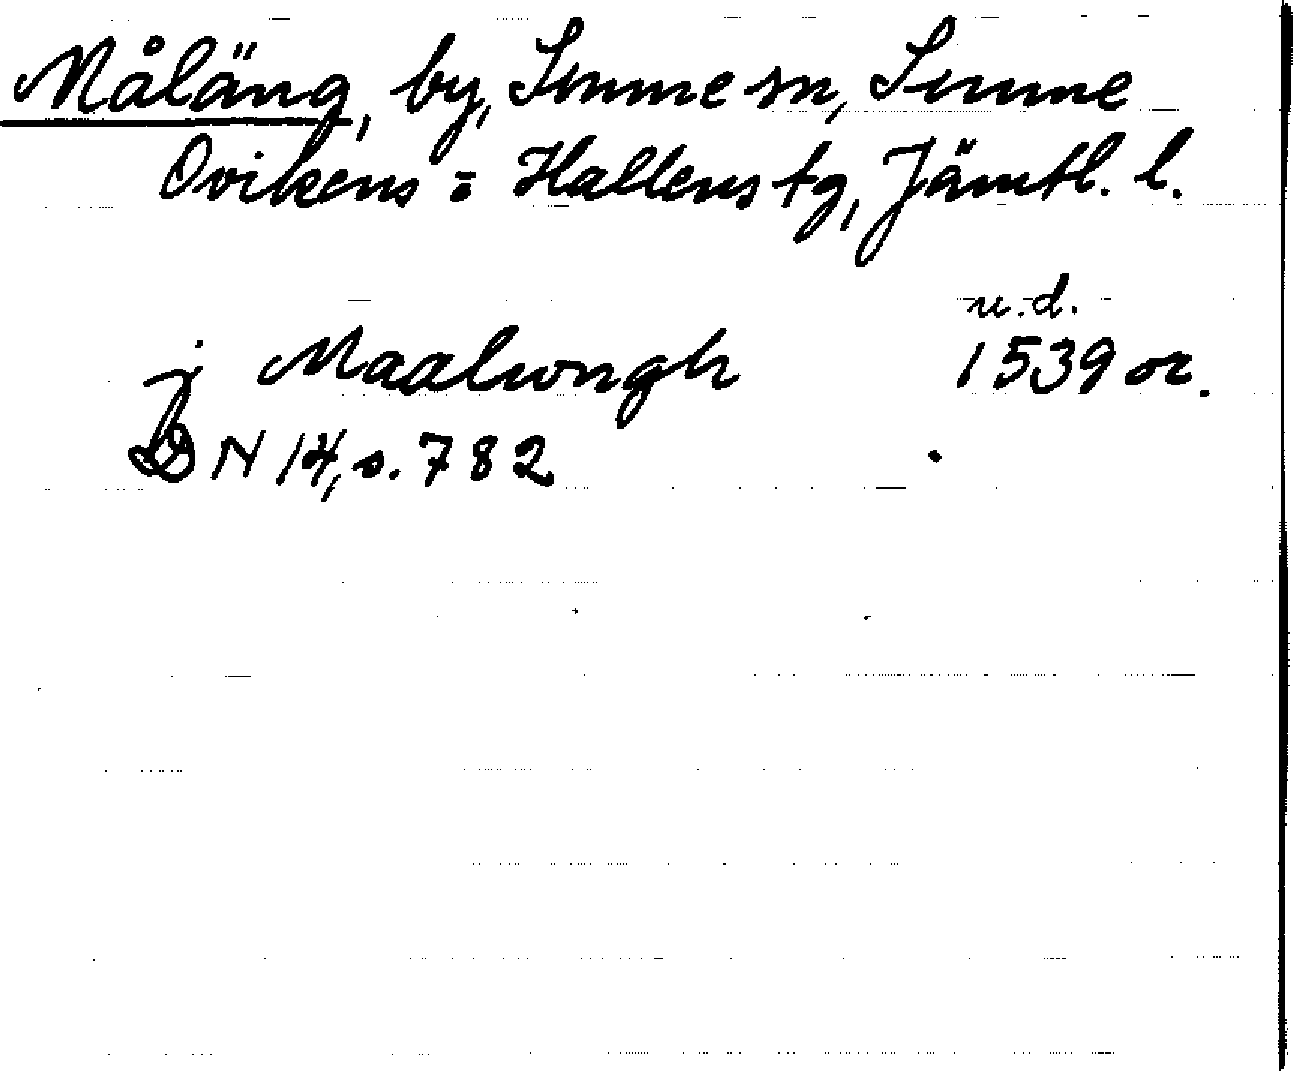 Måläng, by, Sunne sn, Sunne
Ovikens = Hallens tg, Jämtl. l.
u.d.
j Maalwngh 1539 or.
DN 14, s. 782